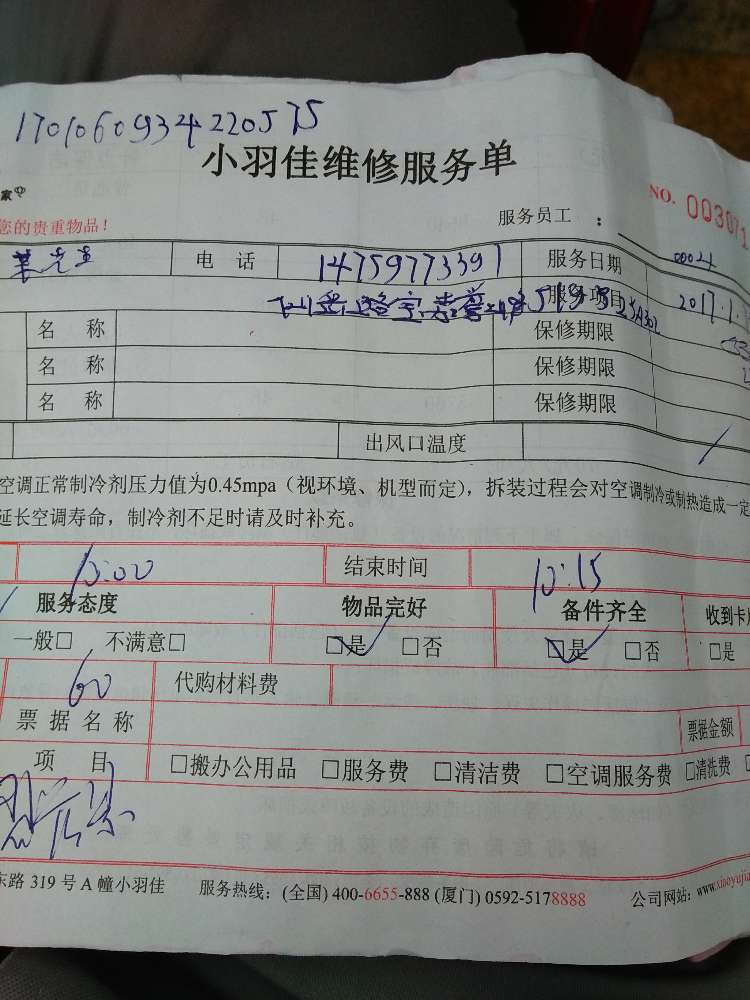 170106093422057​5
小羽佳维修服务单
家
您的贵重物品！
服务员工：
NO. 003071
叶先生 电话 14759773391 服务日期 2017.1.
服务项目
名称 保修期限
名称 保修期限
名称 保修期限
出风口温度
空调正常制冷剂压力值为0.45mpa（视环境、机型而定），拆装过程会对空调制冷或制热造成一定
延长空调寿命，制冷剂不足时请及时补充。
10:00 结束时间 10:15
服务态度 物品完好 备件齐全 收到卡
一般□ 不满意□ □是 □否 □是 □否 □是
60 代购材料费
票据名称 票据金额
项目 □搬办公用品 □服务费 □清洁费 □空调服务费 □清洗费
东路319号A幢小羽佳 服务热线：(全国) 400-6655-888 (厦门) 0592-5178888 公司网站：www.xiaoyujia